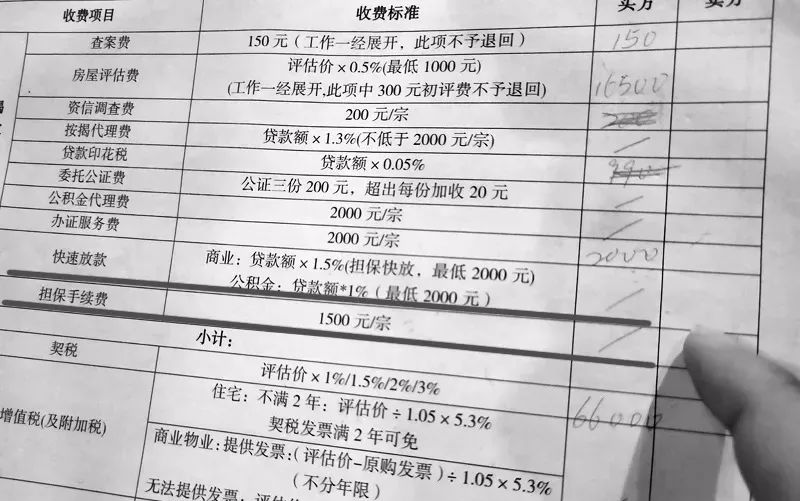 收费项目 收费标准 买方 卖方
查案费 150元(工作一经展开，此项不予退回) 150
房屋评估费 评估价×0.5%(最低1000元)
(工作一经展开,此项中300元初评费不予退回) 16500
资信调查费 200元/宗 200
按揭代理费 贷款额×1.3%(不低于2000元/宗)
贷款印花税 贷款额×0.05% 990
委托公证费 公证三份200元，超出每份加收20元
公积金代理费 2000元/宗
办证服务费 2000元/宗 2000
快速放款 商业：贷款额×1.5%(担保快放，最低2000元)
公积金：贷款额*1%(最低2000元)
担保手续费 1500元/宗
小计：
契税 评估价×1%/1.5%/2%/3% 66000
增值税(及附加税) 住宅：不满2年：评估价÷1.05×5.3%
契税发票满2年可免
商业物业：提供发票：(评估价-原购发票)÷1.05×5.3%
(不分年限)
无法提供发票：评估